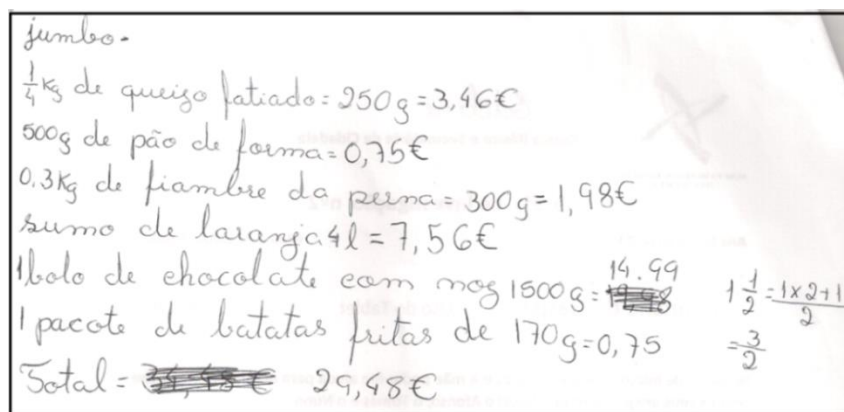 jumbo.
1/4 Kg de queizo fatiado = 250g = 3,46€
500g de pão de forma = 0,75€
0,3Kg de fiambre da perna = 300g = 1,98€
sumo de laranja 4l = 7,56€
1 bolo de chocolate com nog 1500g = 14.99
1 1/2 = 1x2+1/2
= 3/2
1 pacote de batatas fritas de 170g = 0,75
Total = 29,48€